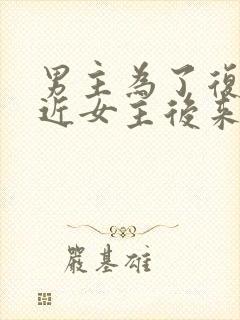 男主為了復
近女主後來
嚴基雄